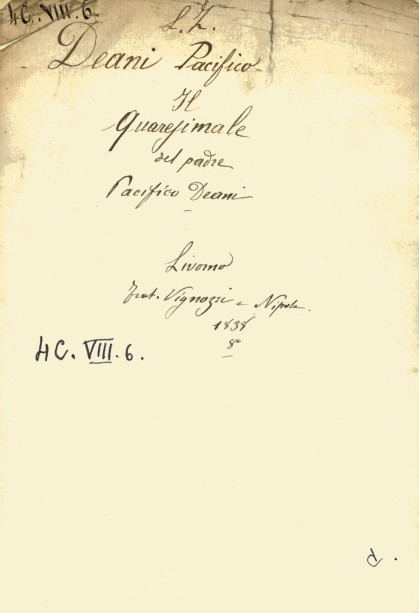 4C. VIII. 6.
L. Z.
Deani Pacifico
Il
Quaresimale
del padre
Pacifico Deani
Livorno
Frat. Vignozzi e Nipote.
1838
8º
4C. VIII. 6.